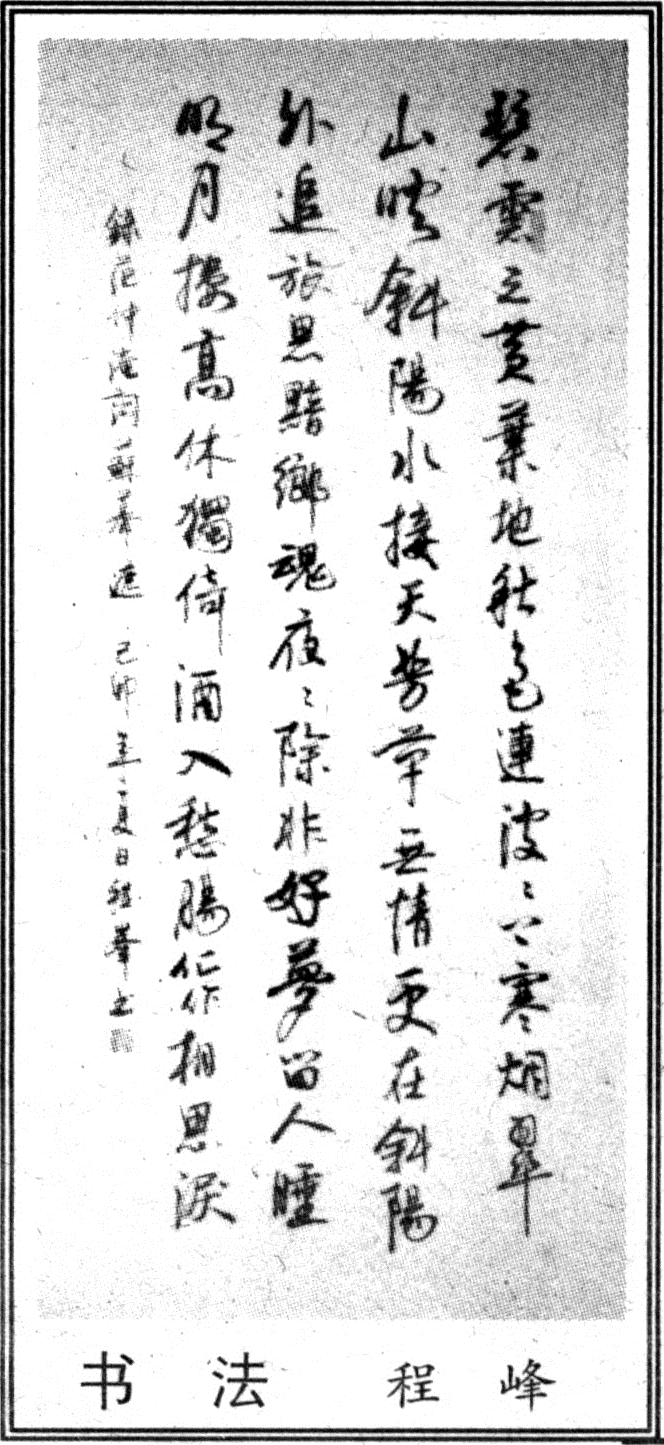 碧雲天黄葉地秋色連波〻上寒烟翠
山映斜陽水接天芳草無情更在斜陽
外追旅思黯鄉魂夜〻除非好夢留人睡
明月樓高休獨倚酒入愁腸化作相思淚
錄范仲淹詞蘇幕遮 己卯年夏日程峯書
书 法 程 峰